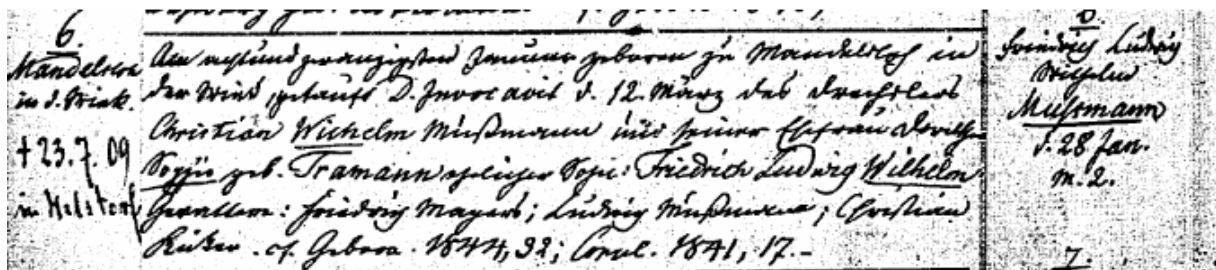 6.
Mandelsloh
in d. Wiek.
† 23.7.09
in Helstorf
Am achtundzwanzigsten Januar geboren zu Mandelsloh in
der Wiek, getauft D. Invocavit d. 12. März des Drechslers
Christian Wilhelm Mußmann und seiner Ehefrau Dorothea
Sophie geb. Tramann ehelicher Sohn: Friedrich Ludwig Wilhelm
Gevattern: Friedrich Mayers; Ludwig Mußmann; Christian
cf. Gebora. 1844, 32; Copul. 1841, 17.-
Friedrich Ludwig
Wilhelm
Mussmann
d. 28 Jan.
m. 2.
7.